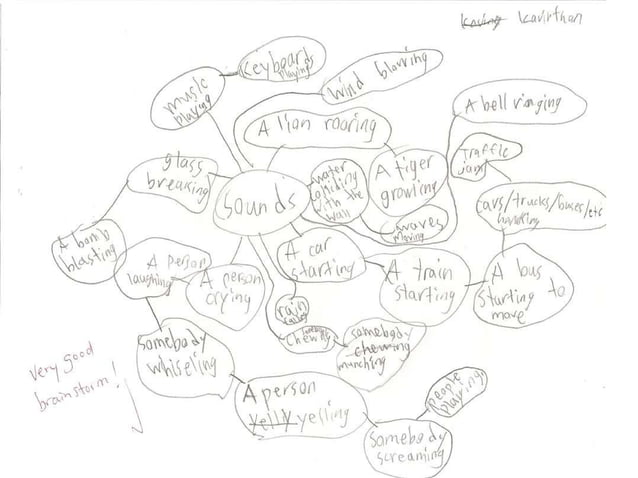 Kavirthan
Keyboards
playing
music
playing
wind blowing
A lion roaring
A bell ringing
glass
breaking
sounds
water
colliding
with the
wall
A tiger
growling
Traffic
jams
waves
moving
cars/trucks/buses/etc
honking
A bomb
blasting
A person
laughing
A person
crying
A car
starting
A train
starting
A bus
starting to
move
rain
falling
somebody
whiseling
chewing
somebody
chewing
munching
very good
brainstorm!
A person
yelly yelling
people
playing
somebody
screaming